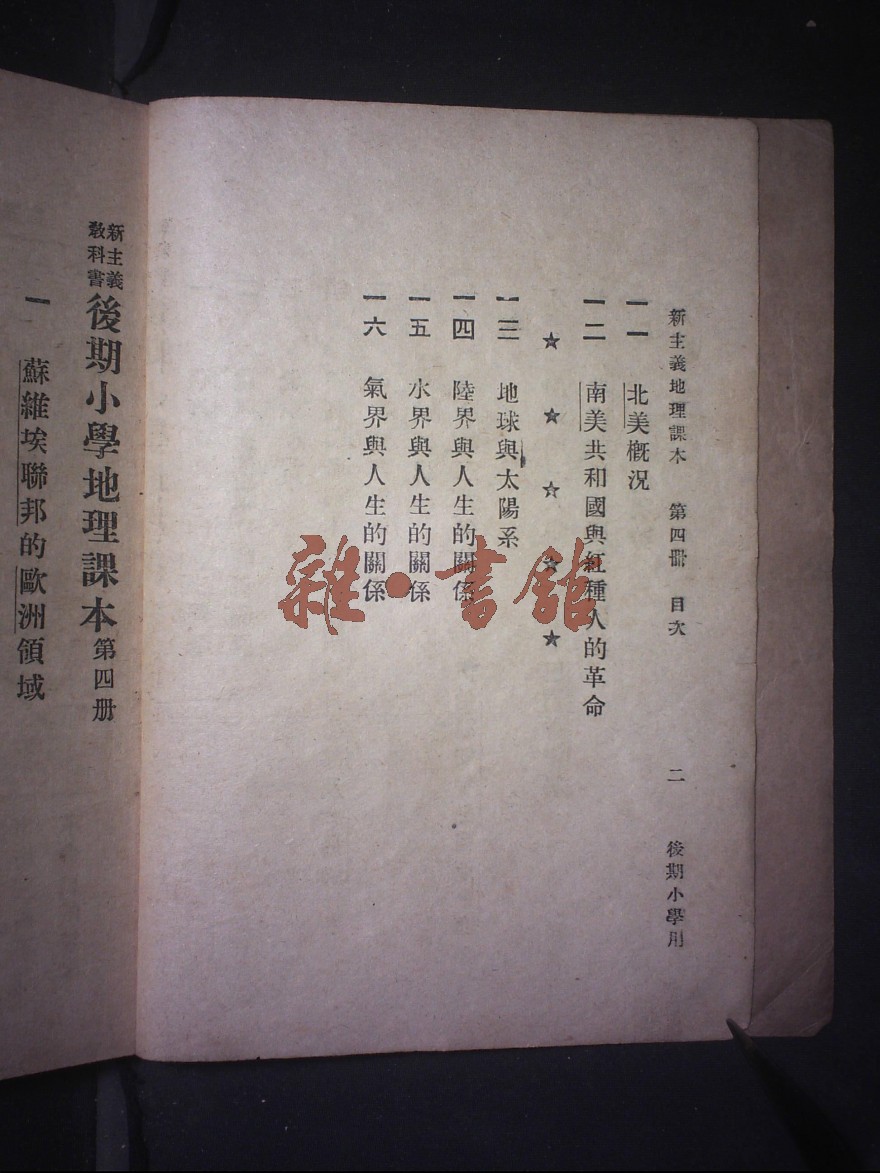 新主義地理課本 第四冊 目次 二 後期小學用
一一 北美槪況
一二 南美共和國與紅種人的革命
☆ ☆ ☆ ☆ ☆
一三 地球與太陽系
一四 陸界與人生的關係
一五 水界與人生的關係
一六 氣界與人生的關係
雜·書館
新主義
教科書
後期小學地理課本 第四册
一 蘇維埃聯邦的歐洲領域